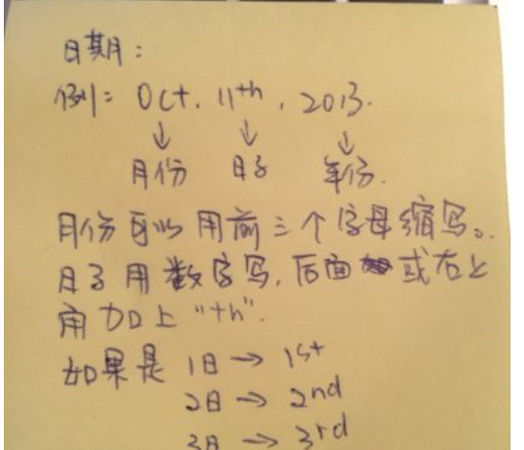 日期:
例: Oct. 11th, 2013.
↓ ↓ ↓
月份 日子 年份.
月份可以用前三个字母缩写。
日子用数字写,后面或右上
角加上“th”.
如果是 1日 → 1st
2日 → 2nd
3日 → 3rd